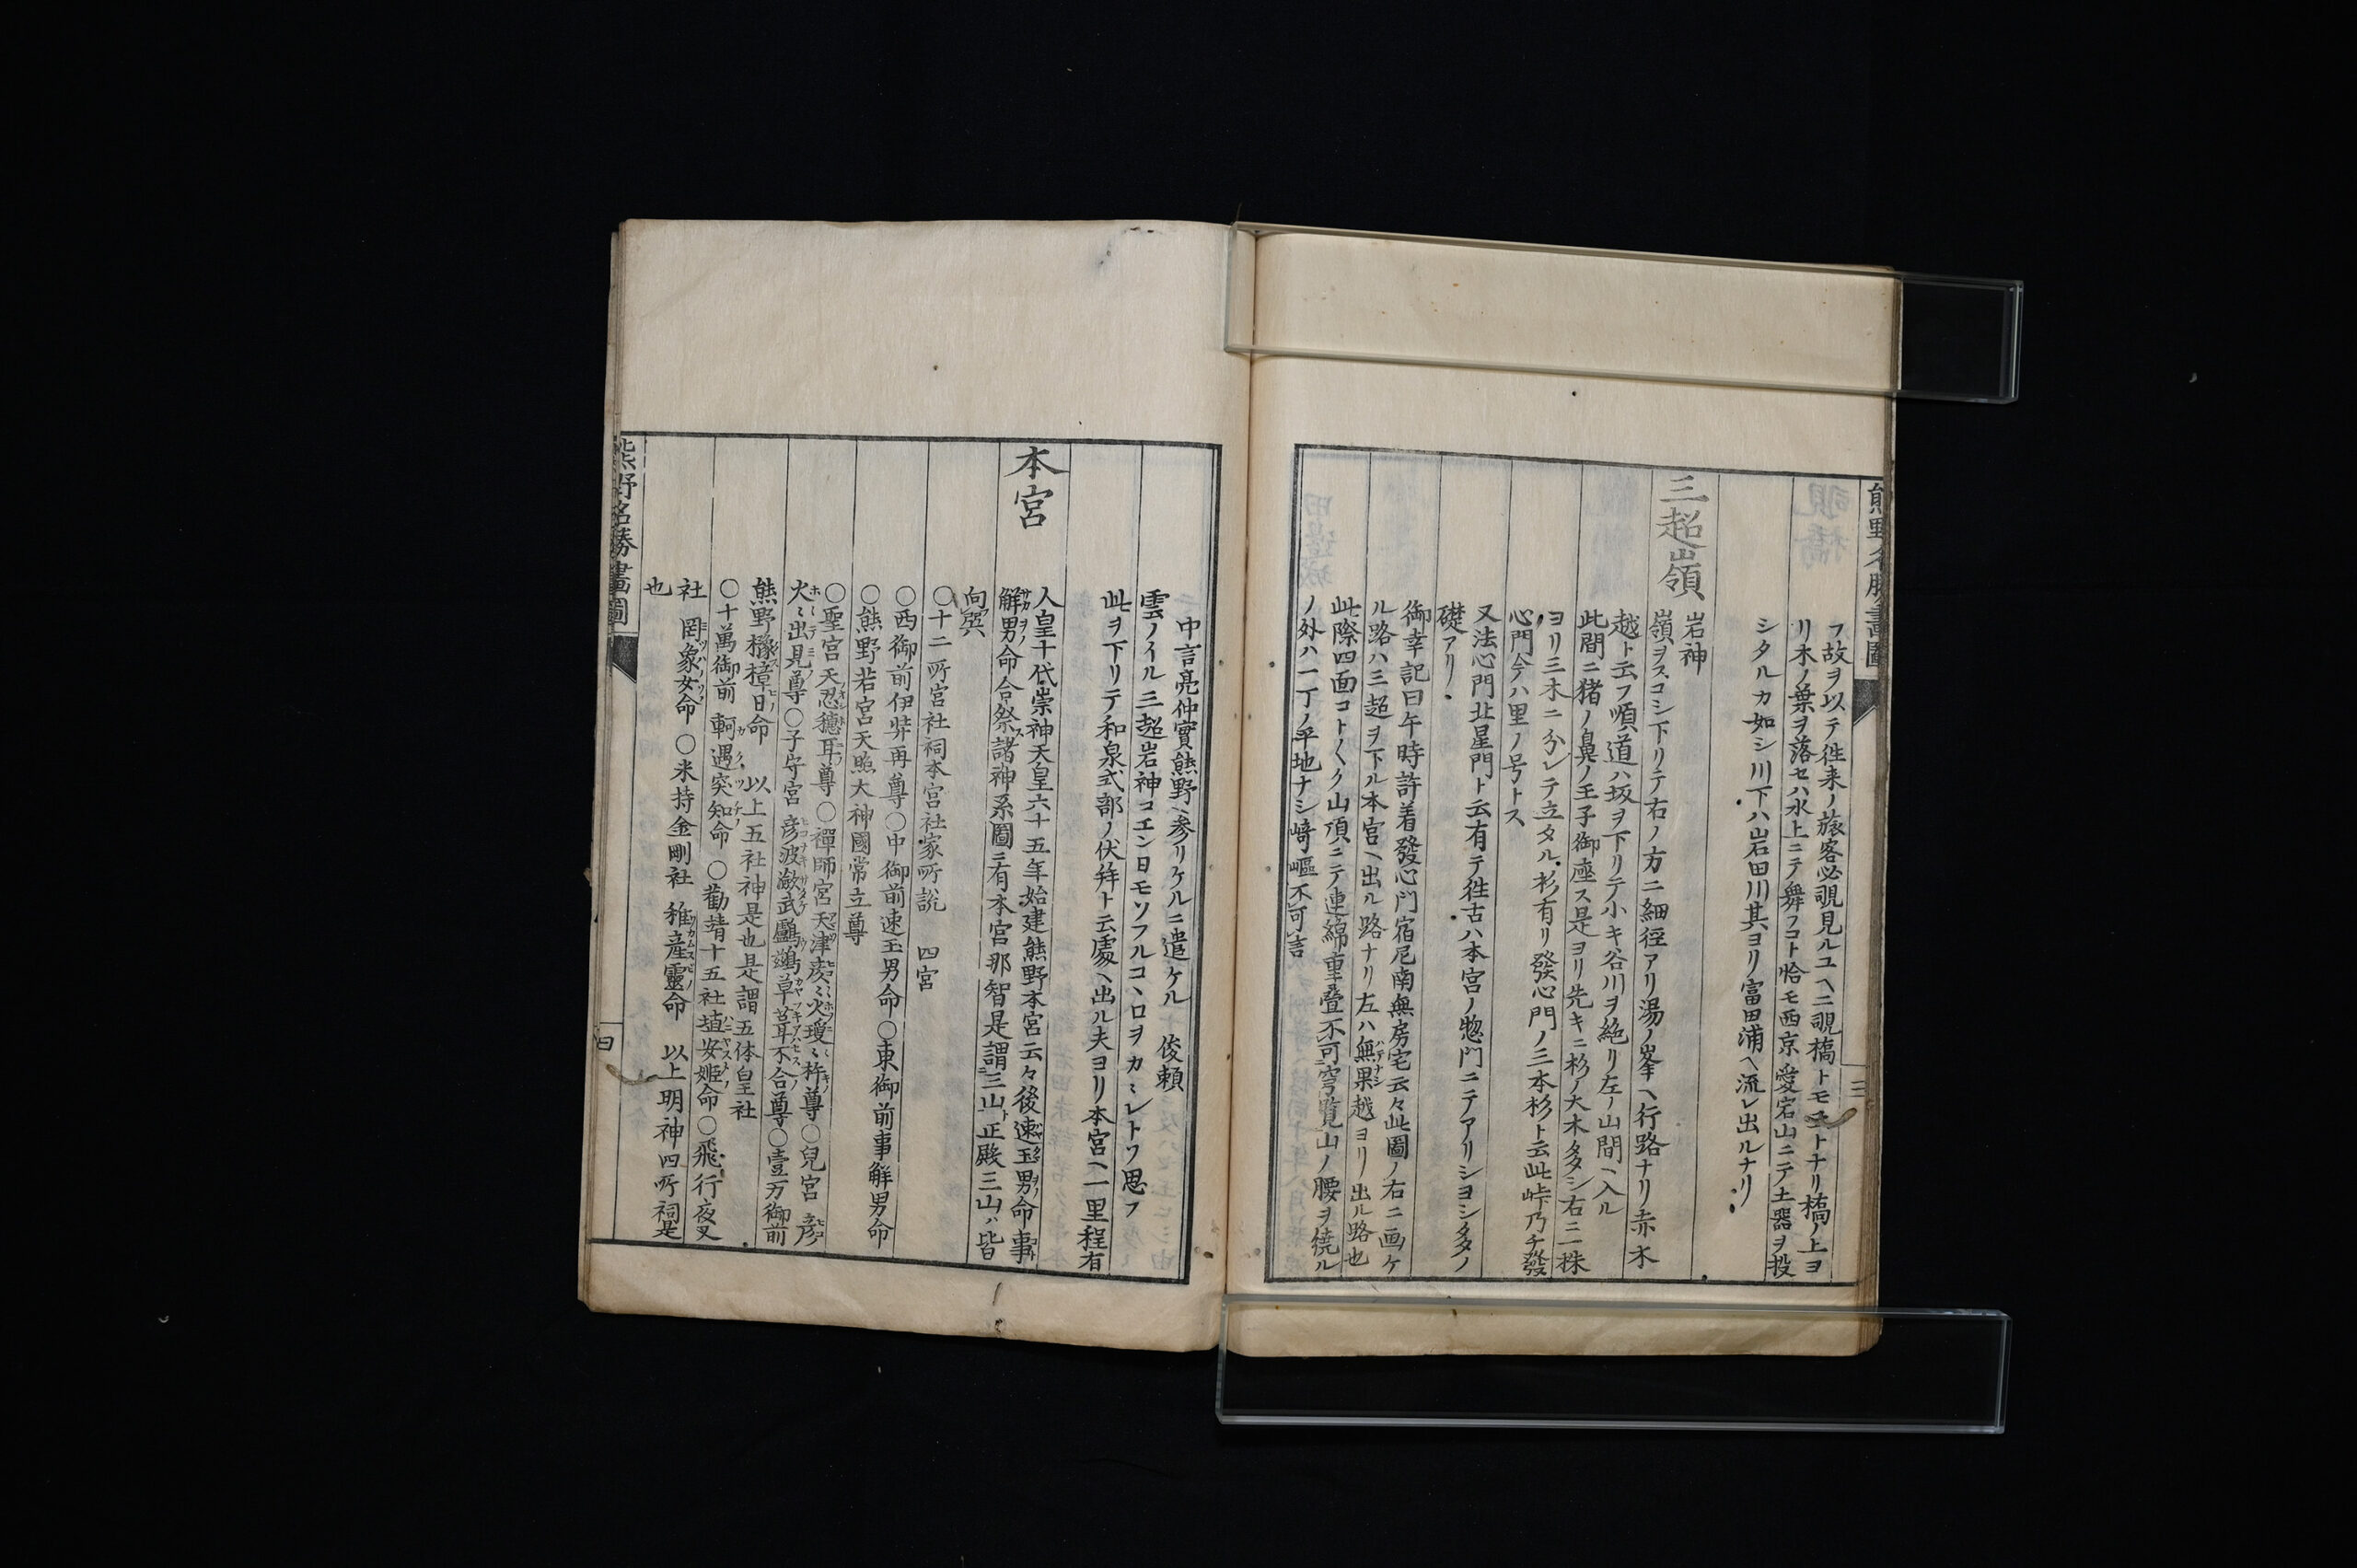 熊野名勝畫圖
フ故ヲ以テ徃来ノ旅客必覗見ルユヘニ覗橋トモ云トナリ橋ノ上ヨ
リ木ノ葉ヲ落セハ水上ニテ舞フコト恰モ西京愛宕山ニテ土器ヲ投
シタルカ如シ川下ハ岩田川其ヨリ富田浦ヘ流レ出ルナリ
三超嶺
岩神
嶺ヲスコシ下リテ右ノ方ニ細徑アリ湯ノ峯ヘ行路ナリ赤木
越ト云フ順道ハ坂ヲ下リテ小キ谷川ヲ絶リ左ノ山間ヘ入ル
此間ニ猪ノ鼻ノ王子御座ス是ヨリ先キニ杉ノ大木多シ右ニ一株
ヨリ三木ニ分レテ立タル杉有リ發心門ノ三本杉ト云此峠乃チ發
心門今ハ里ノ号トス
又法心門北星門ト云有テ徃古ハ本宮ノ惣門ニテアリシヨシ多タノ
礎アリ
御幸記曰午時許着發心門宿尼南無房宅云々此圖ノ右ニ画ケ
ル路ハ三超ヲ下ル本宮ヘ出ル路ナリ左ハ無果越ヨリ出ル路也
此際四面コト〱ク山頂ニテ連綿重疊不可穹覧山ノ腰ヲ繞ル
ノ外ハ一丁ノ平地ナシ﨑嶇不可言
三
中言亮仲實熊野ヘ参リケルニ遣ケル 俊頼
雲ノイル三超岩神コエン日モソフルコヽロヲカヽレトワ思フ
此ヲ下リテ和泉式部ノ伏拜ト云處ヘ出ル夫ヨリ本宮ヘ一里程有
本宮
人皇十代崇神天皇六十五年始建熊野本宮云々後速玉男命事
解男命合祭諸神系圖ニ有本宮那智是謂三山正殿三山ハ皆
向巽
〇十二所宮社祠本宮社家所説 四宮
〇西御前伊弉再尊〇中御前速玉男命〇東御前事解男命
〇熊野若宮天照大神國常立尊
〇聖宮天忍穗耳尊〇禪師宮天津彦〻火瓊〻杵尊〇兒宮 彦
火〻出見尊〇子守宮 彦波瀲武鸕鷀草葺不合尊〇壹万御前
熊野櫲樟日命 以上五社神是也是謂五体皇社
〇十萬御前 軻遇突知命 〇勸請十五社埴安姫命〇飛行夜叉
社 罔象女命 〇米持金剛社 稚産靈命 以上明神四所祠是
也
熊野名勝畫圖
四